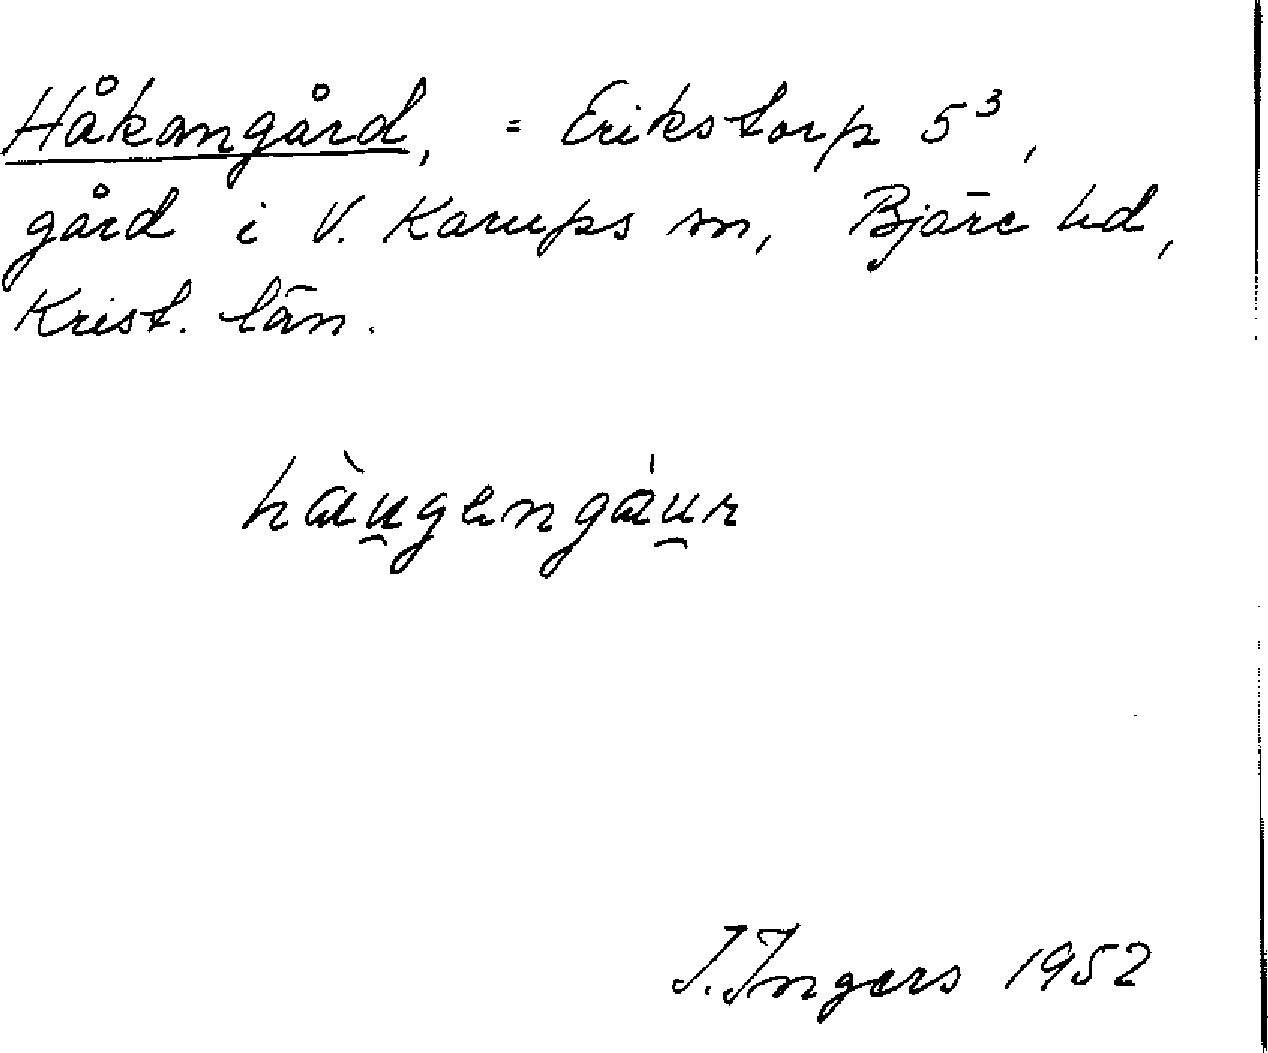 Håkangård, = Erikstorp 5³,
gård i V. Karups sn, Bjäre hd,
Krist. län.
hàu̯gengáu̯r
I. Ingers 1952